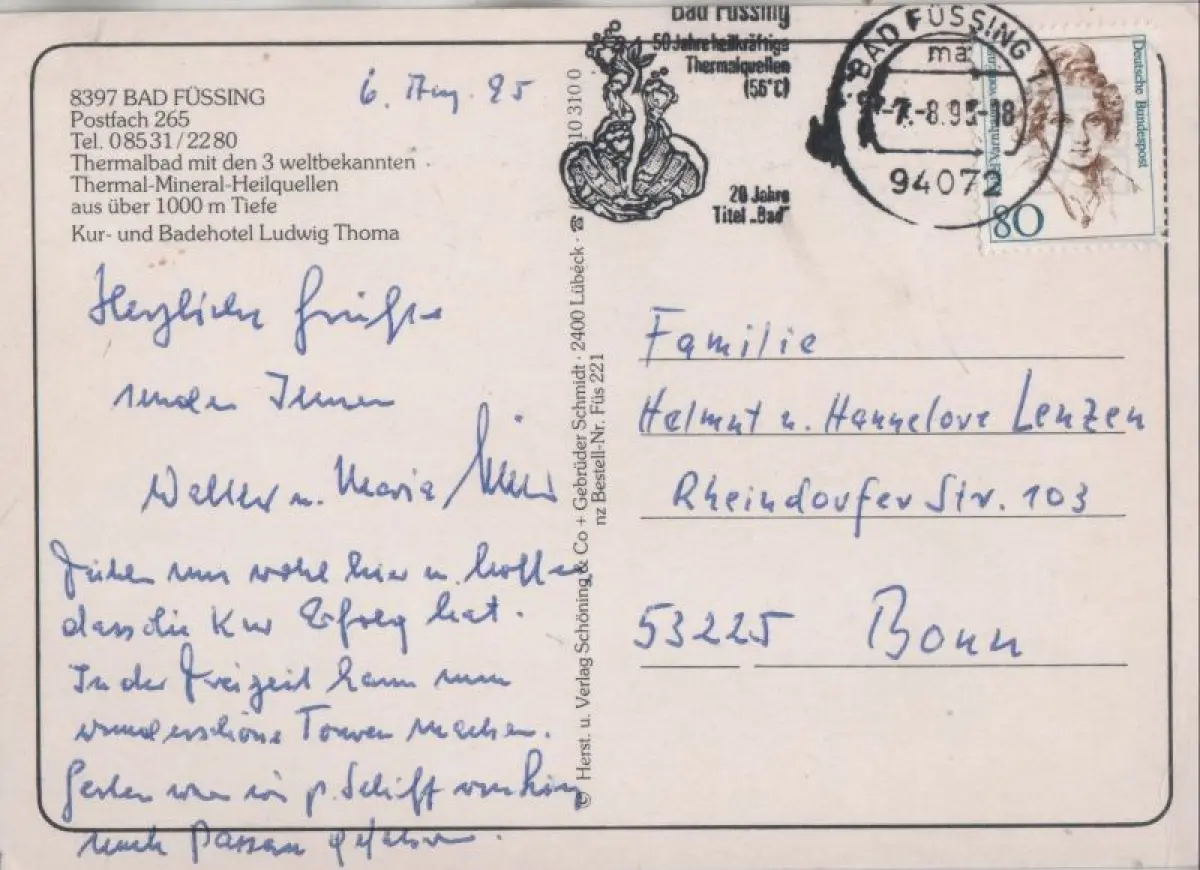 8397 BAD FÜSSING
Postfach 265
Tel. 08531/2280
Thermalbad mit den 3 weltbekannten
Thermal-Mineral-Heilquellen
aus über 1000 m Tiefe
Kur- und Badehotel Ludwig Thoma
6. Aug. 95
Herzliche Grüße
senden Ihnen
Walter u. Maria
Fühlen uns wohl hier u. hoffen
dass die Kur Erfolg hat.
In der Freizeit kann man
wunderschöne Touren machen.
Gestern wir p. Schiff von
nach Passau gefahren.
© Herst. u. Verlag Schöning & Co + Gebrüder Schmidt · 2400 Lübeck · ☎ 10 310 0
nz Bestell-Nr. Füs 221
Bad Füssing
50 Jahre heilkräftige
Thermalquellen
(56°C)
20 Jahre
Titel „Bad"
BAD FÜSSING 1
ma
-7.-8.95-18
94072
Deutsche Bundespost
80
Familie
Helmut u. Hannelore Lenzen
Rheindorfer Str. 103
53225 Bonn